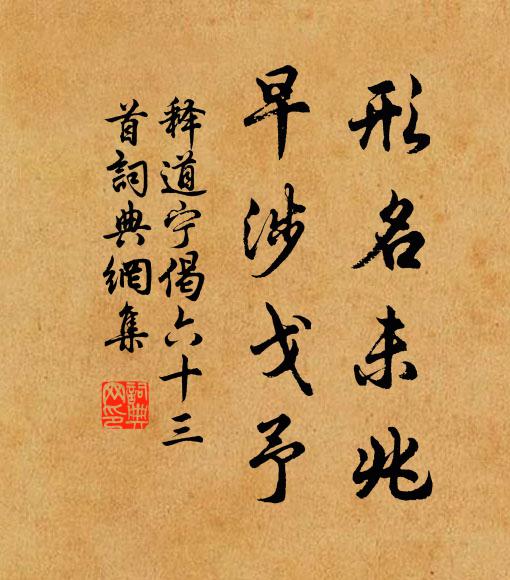 形名未兆
早涉戈予
释道宁偈六十三
首詞典網集
詞典
网印